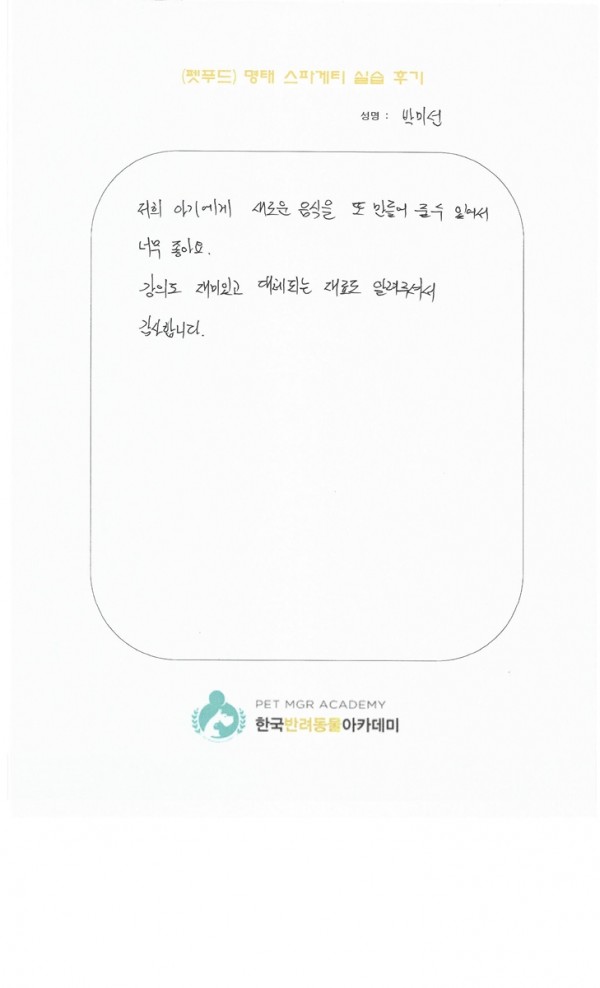 (펫푸드) 명태 스파게티 실습 후기
성명 : 박미선
저희 아기에게 새로운 음식을 또 만들어 줄수 있어서
너무 좋아요.
강의도 재미있고 대체되는 재료도 알려주셔서
감사합니다.
PET MGR ACADEMY
한국반려동물아카데미